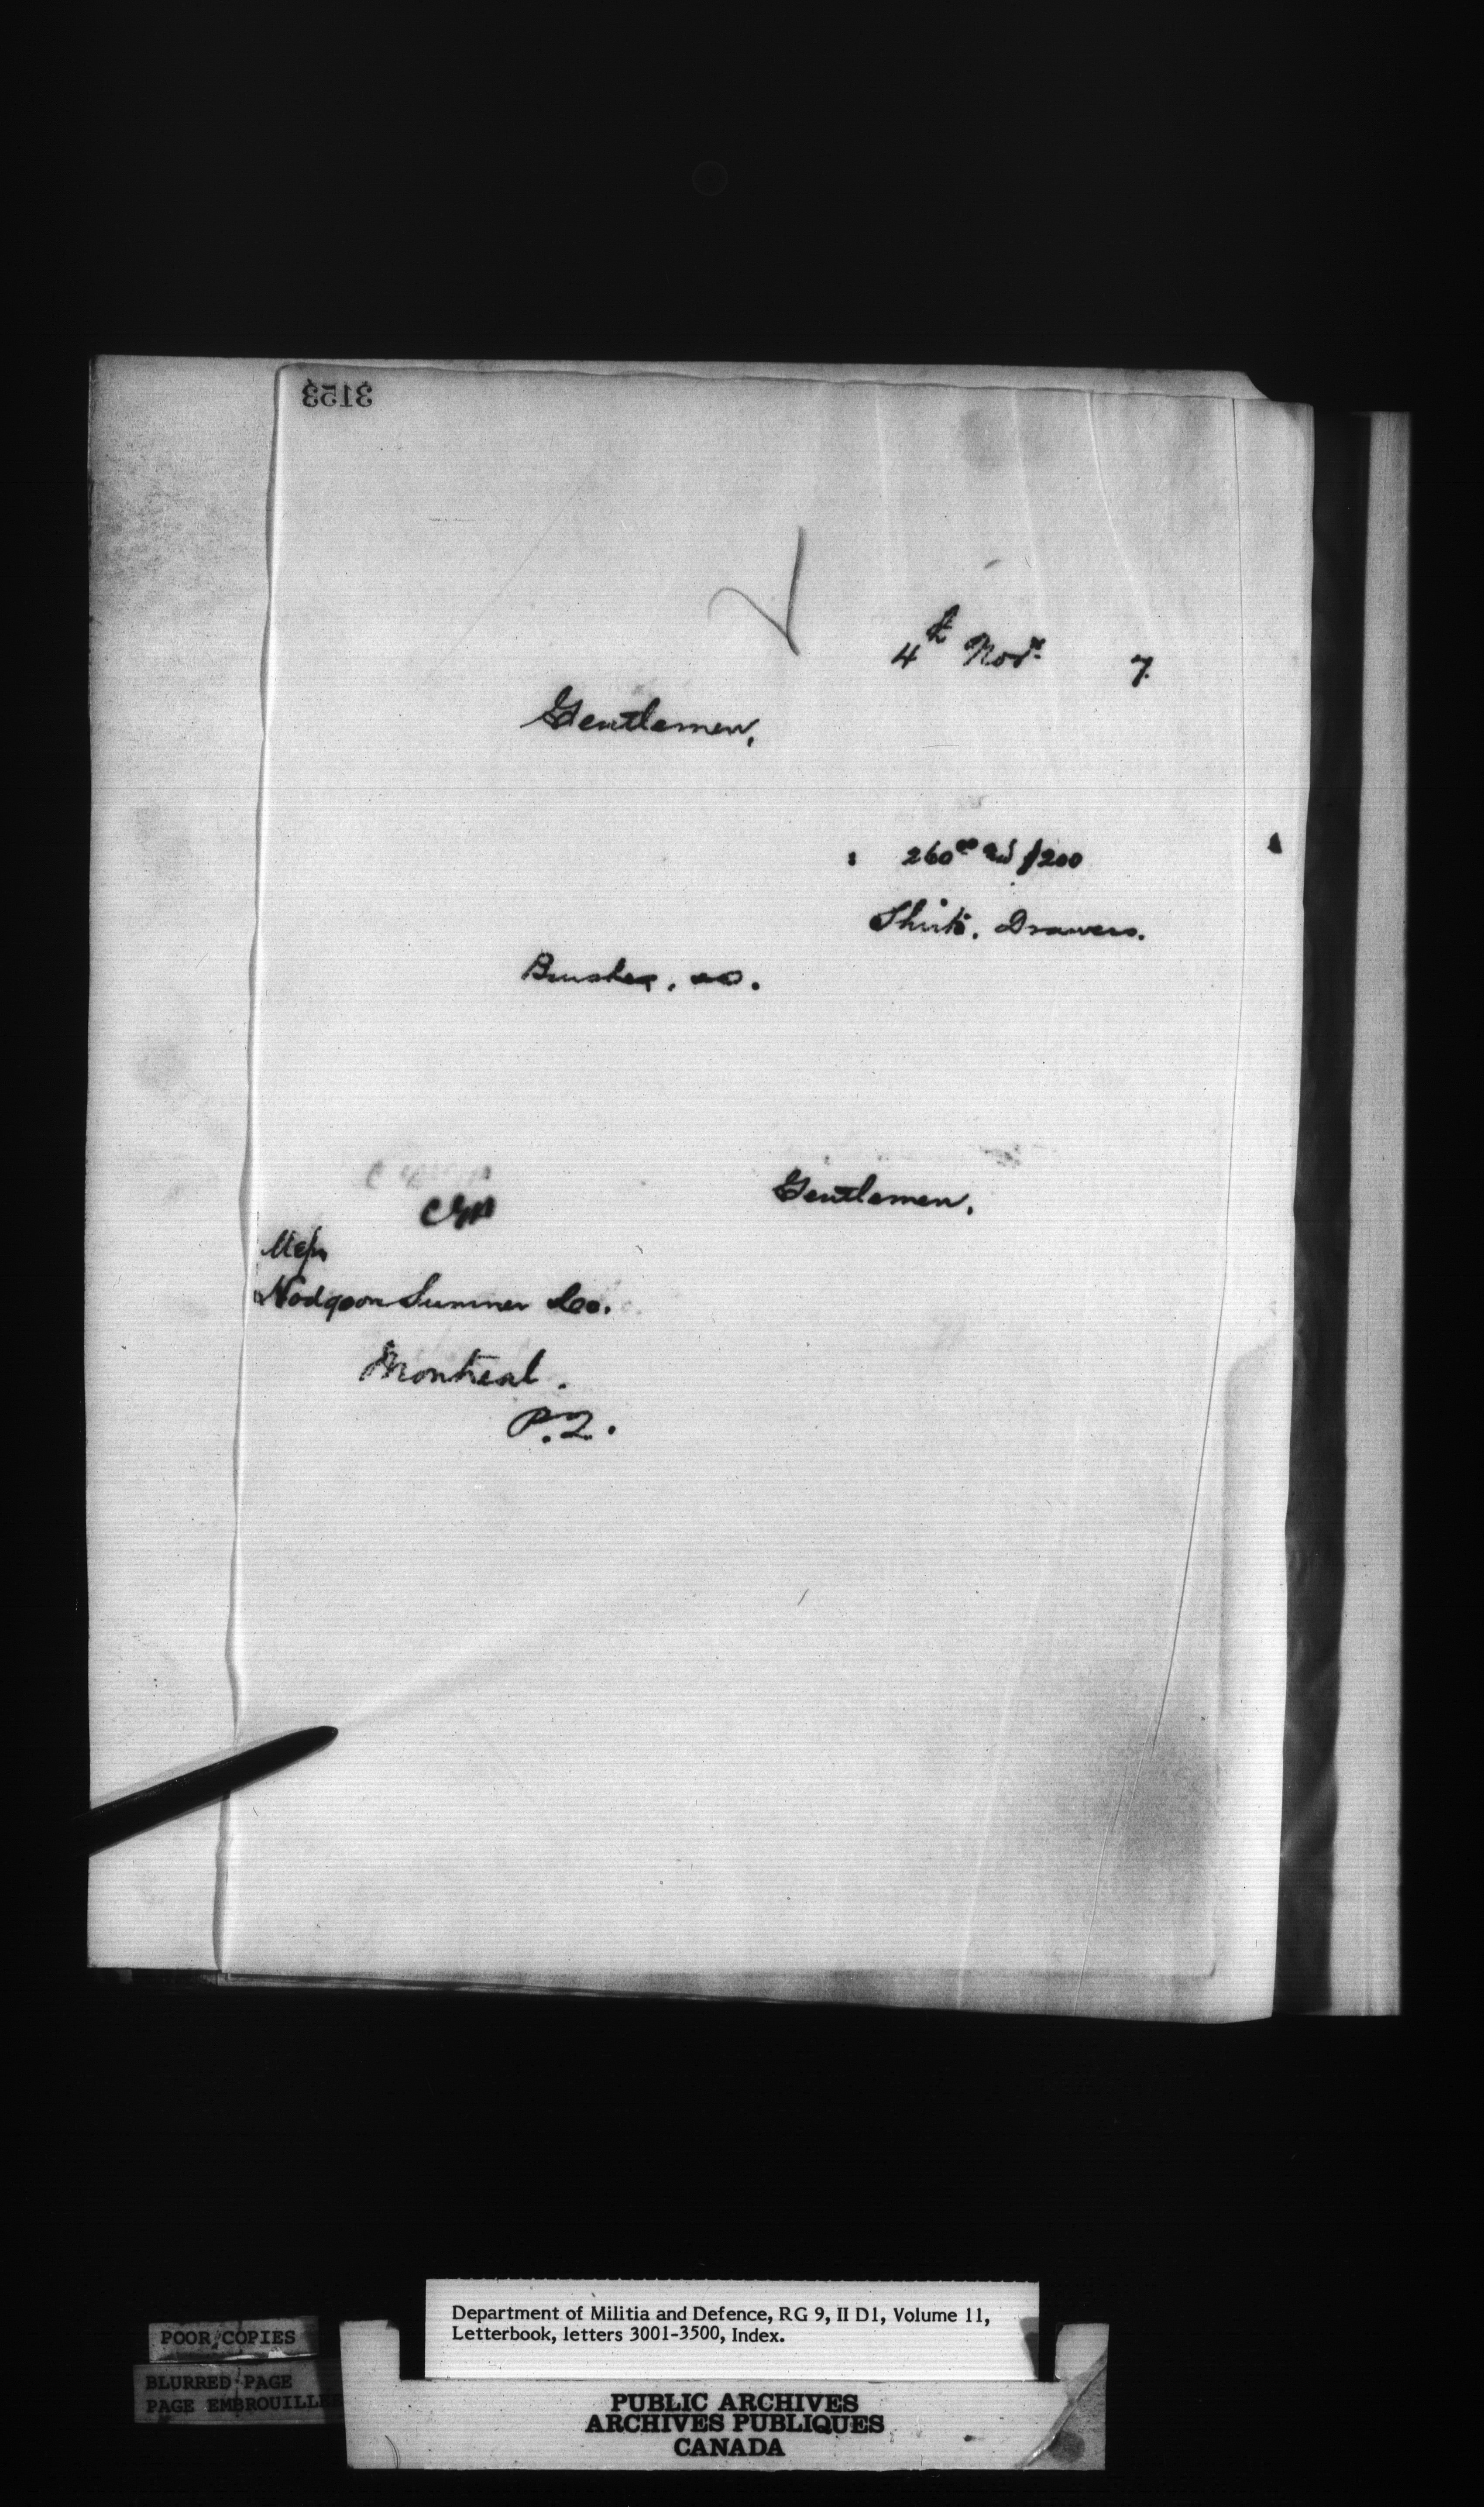 3153
4th Novr. 7.
Gentlemen,
: 260.00 and $200
Shirts, Drawers.
Brushes, &c.
Gentlemen,
Messrs
Hodgson Sumner Co.
Montreal.
P.Q.
Department of Militia and Defence, RG 9, II D1, Volume 11,
Letterbook, letters 3001-3500, Index.
POOR COPIES
BLURRED PAGE
PAGE EMBROUILLEE
PUBLIC ARCHIVES
ARCHIVES PUBLIQUES
CANADA